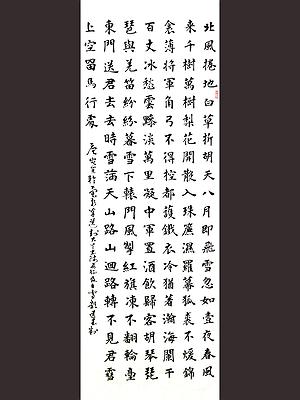 北風捲地白草折胡天八月即飛雪忽如壹夜春風
來千樹萬樹梨花開散入珠簾濕羅幕狐裘不煖錦
衾薄將軍角弓不得控都護鐵衣冷猶著瀚海闌干
百丈冰愁雲黲淡萬里凝中軍置酒飲歸客胡琴琵
琶與羌笛紛紛暮雪下轅門風掣紅旗凍不翻輪臺
東門送君去去時雪滿天山路山迴路轉不見君雪
上空留馬行處